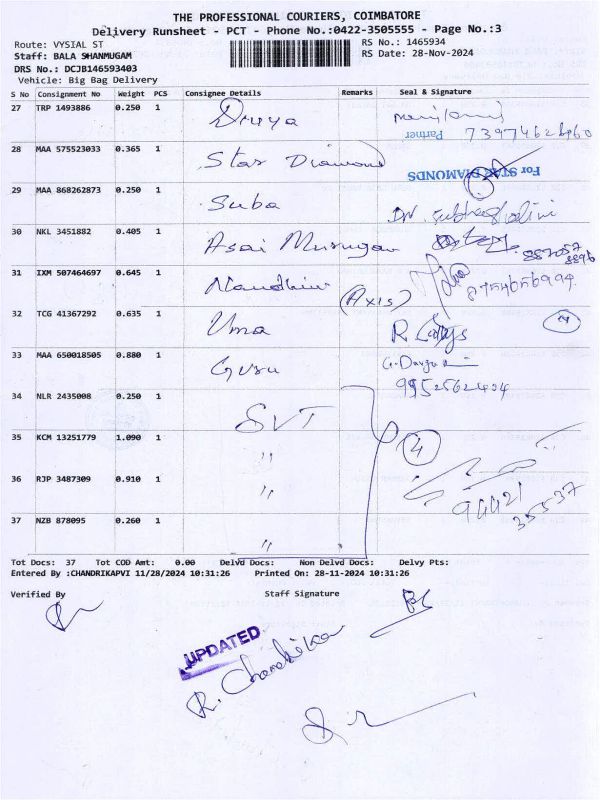 THE PROFESSIONAL COURIERS, COIMBATORE
Delivery Runsheet - PCT - Phone No.:0422-3505555 - Page No.:3
Route: VYSIAL ST RS No.: 1465934
Staff: BALA SHANMUGAM RS Date: 28-Nov-2024
DRS No.: DCJB146593403
Vehicle: Big Bag Delivery
S No Consignment No Weight PCS Consignee Details Remarks Seal & Signature
27 TRP 1493886 0.250 1 Divya
Partner
28 MAA 575523033 0.365 1 Star Diamond
For STAR DIAMONDS
29 MAA 868262873 0.250 1 Suba
30 NKL 3451882 0.405 1 Asai Murugan
31 IXM 507464697 0.645 1 Nandhini (Axis)
32 TCG 41367292 0.635 1 Uma
33 MAA 650018505 0.880 1 Guru
34 NLR 2435008 0.250 1 SVT
35 KCM 13251779 1.090 1 " 4
36 RJP 3487309 0.910 1 " 94421
35537
37 NZB 878095 0.260 1 "
Tot Docs: 37 Tot COD Amt: 0.00 Delvd Docs: Non Delvd Docs: Delvy Pts:
Entered By :CHANDRIKAPVI 11/28/2024 10:31:26 Printed On: 28-11-2024 10:31:26
Verified By Staff Signature
UPDATED
R. Chandrika